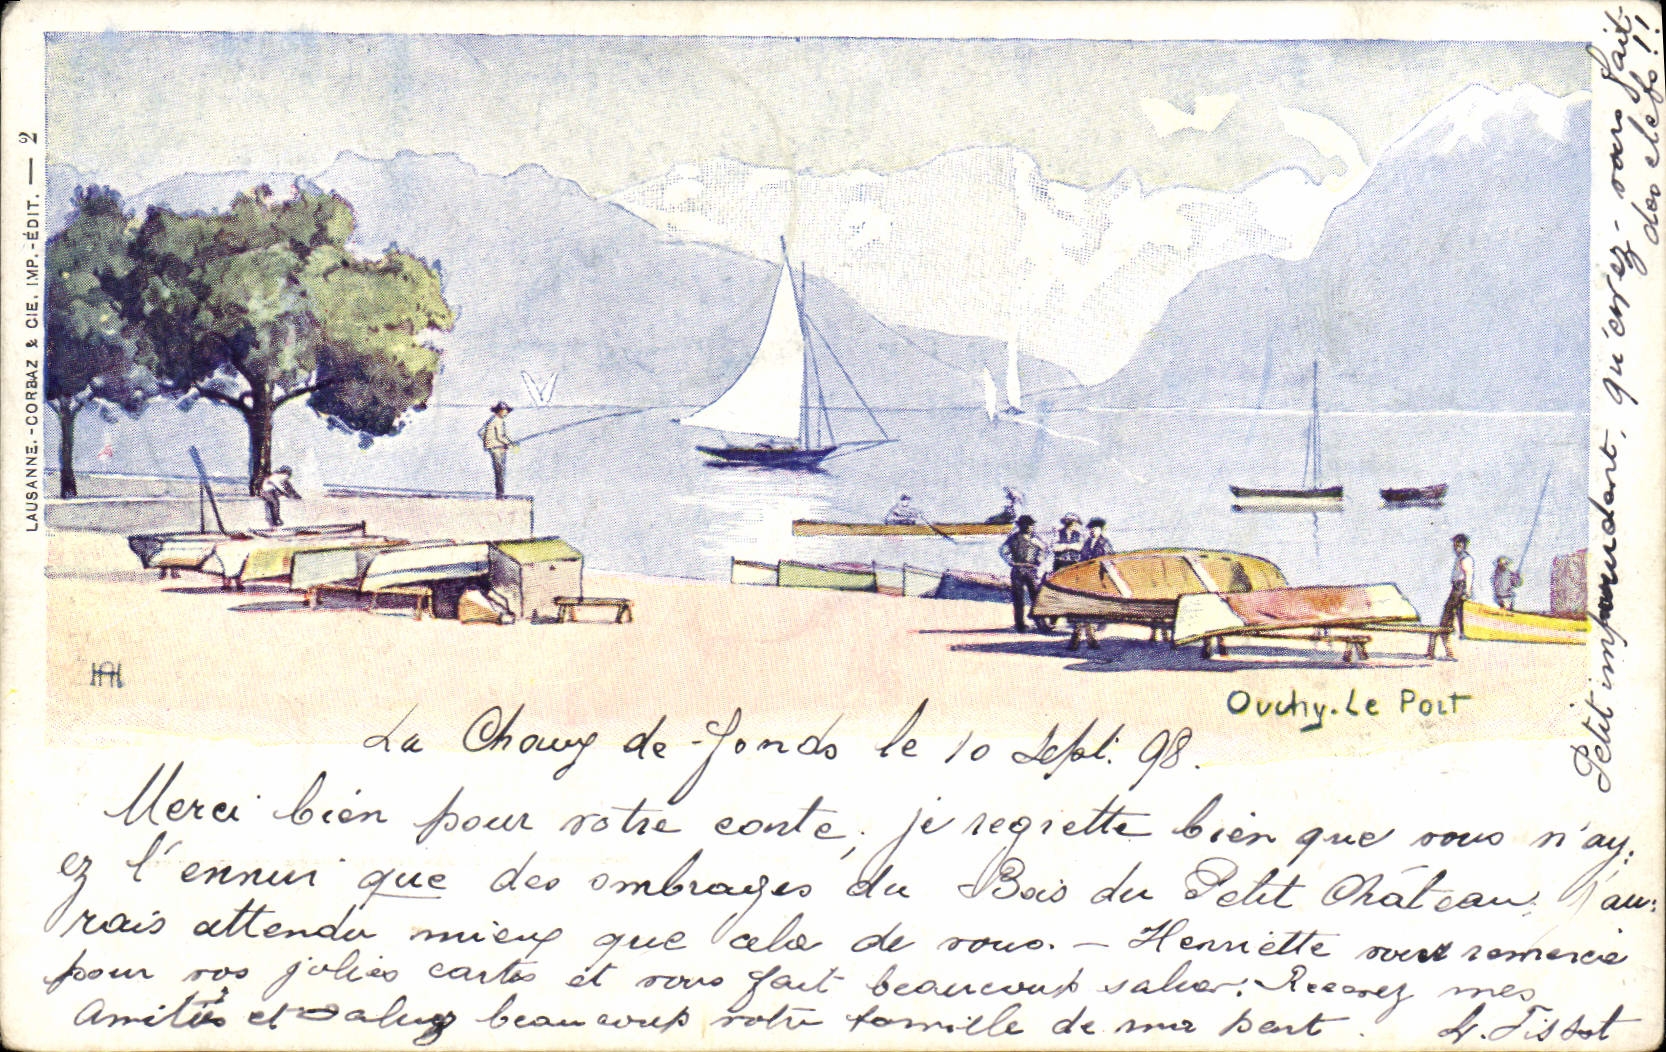 LAUSANNE.-CORBAZ & CIE. IMP.-ÉDIT. — 2
HAH
Ouchy. Le Port
La Chaux de-fonds le 10 Sept. 98.
Merci bien pour votre carte, je regrette bien que vous n'ay:
ez l'ennui que des ombrages du Bois du Petit Château. J'au:
rais attendu mieux que cela de vous. — Henriette vous remercie
pour vos jolies cartes et vous fait beaucoup saluer. Recevez mes
Amitiés et saluez beaucoup votre famille de ma part. L. Tissot
Petit impendant, qu'avez-vous fait
des clefs!!